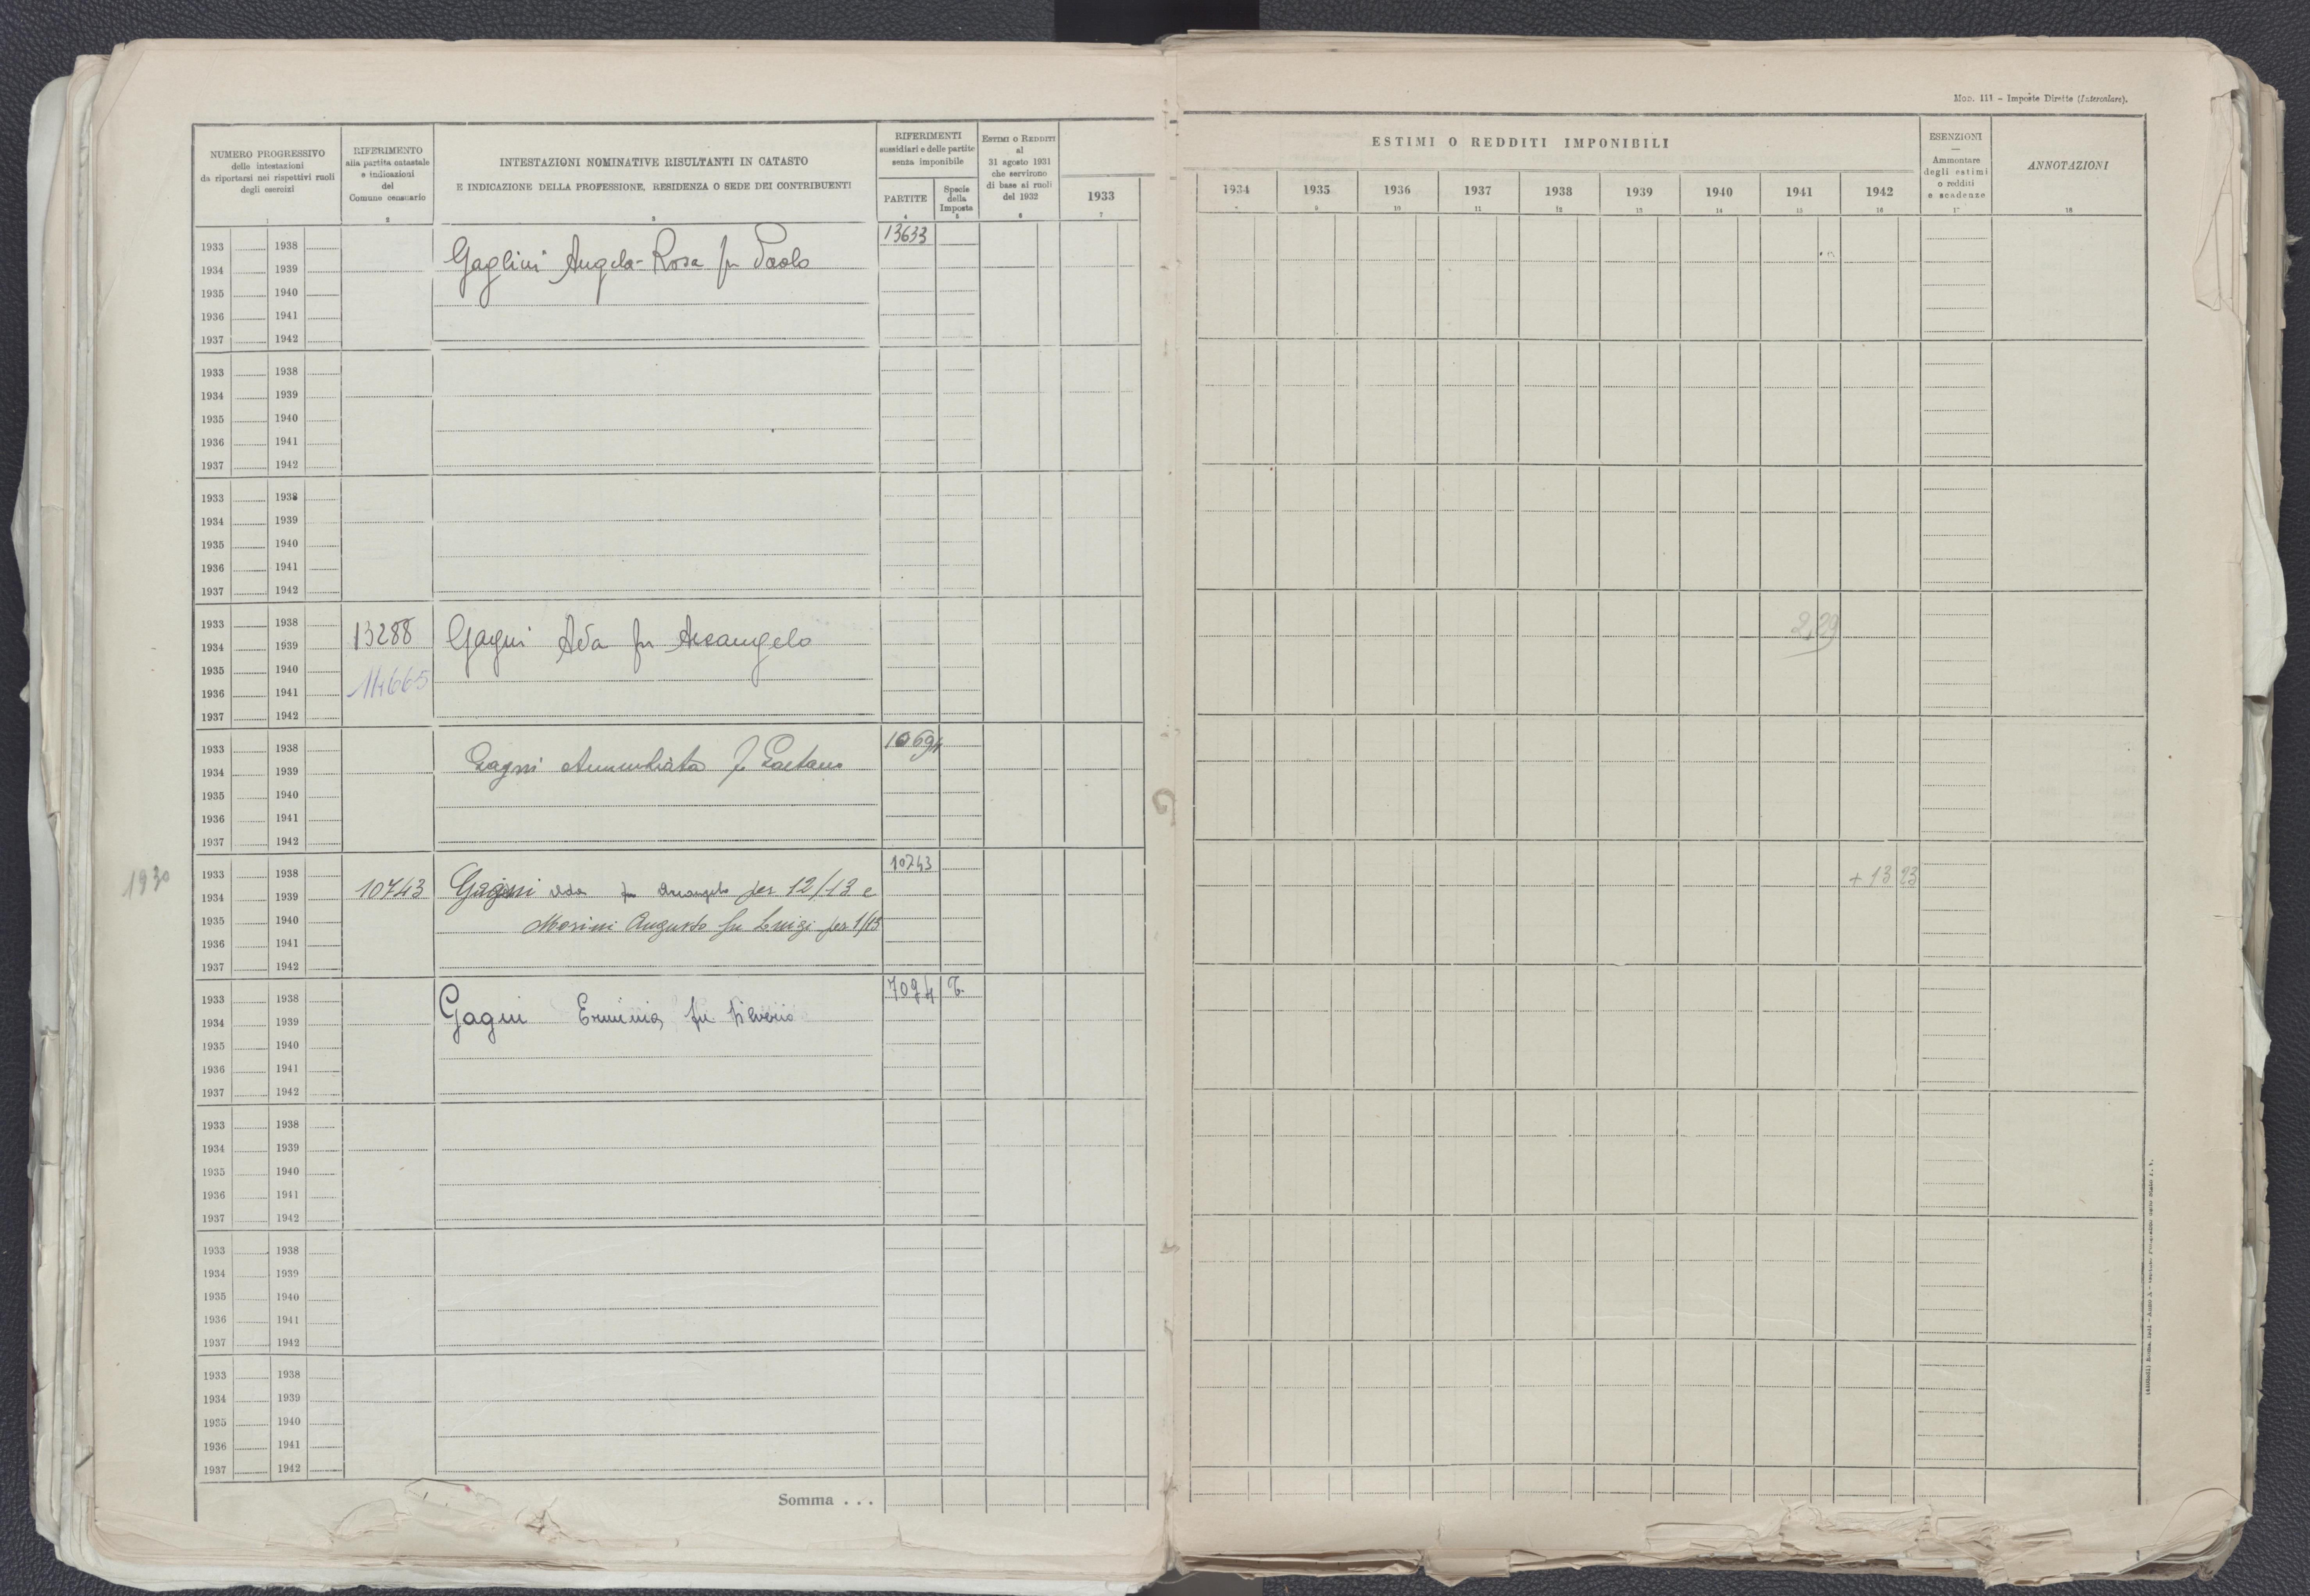 Mod. 111 - Imposte Dirette (Intercalare).
NUMERO PROGRESSIVO
delle intestazioni
da riportarsi nei rispettivi ruoli
degli esercizi
1
RIFERIMENTO
alla partita catastale
e indicazioni
del
Comune censuario
2
INTESTAZIONI NOMINATIVE RISULTANTI IN CATASTO
E INDICAZIONE DELLA PROFESSIONE, RESIDENZA O SEDE DEI CONTRIBUENTI
3
RIFERIMENTI
sussidiari e delle partite
senza imponibile
PARTITE
4
Specie
della
Imposta
5
ESTIMI O REDDITI
al
31 agosto 1931
che servirono
di base ai ruoli
del 1932
6
1933
7
ESTIMI O REDDITI IMPONIBILI
1934 1935 1936 1937 1938 1939 1940 1941 1942
9 10 11 12 13 14 15 16
ESENZIONI
—
Ammontare
degli estimi
o redditi
e scadenze
ANNOTAZIONI
18
1933 1938 13633
1934 1939 Gaglini Angela-Rosa fu Paolo
1935 1940
1936 1941
1937 1942
1933 1938
1934 1939
1935 1940
1936 1941
1937 1942
1933 1938
1934 1939
1935 1940
1936 1941
1937 1942
1933 1938
1934 1939 13288 Gagni Ada fu Arcangelo 2,29
1935 1940
1936 1941 14665
1937 1942
1933 1938 10694
1934 1939 Gagni Annunziata fu Gaetano
1935 1940
1936 1941
1937 1942
1930
1933 1938 10743
1934 1939 10743 Gagni Ada fu Arcangelo per 12/13 e + 13 23
1935 1940 Morini Augusto fu Luigi per 1/13
1936 1941
1937 1942
1933 1938 7094 T.
1934 1939 Gagni Erminia fu Saverio
1935 1940
1936 1941
1937 1942
1933 1938
1934 1939
1935 1940
1936 1941
1937 1942
1933 1938
1934 1939
1935 1940
1936 1941
1937 1942
1933 1938
1934 1939
1935 1940
1936 1941
1937 1942
Somma . . .